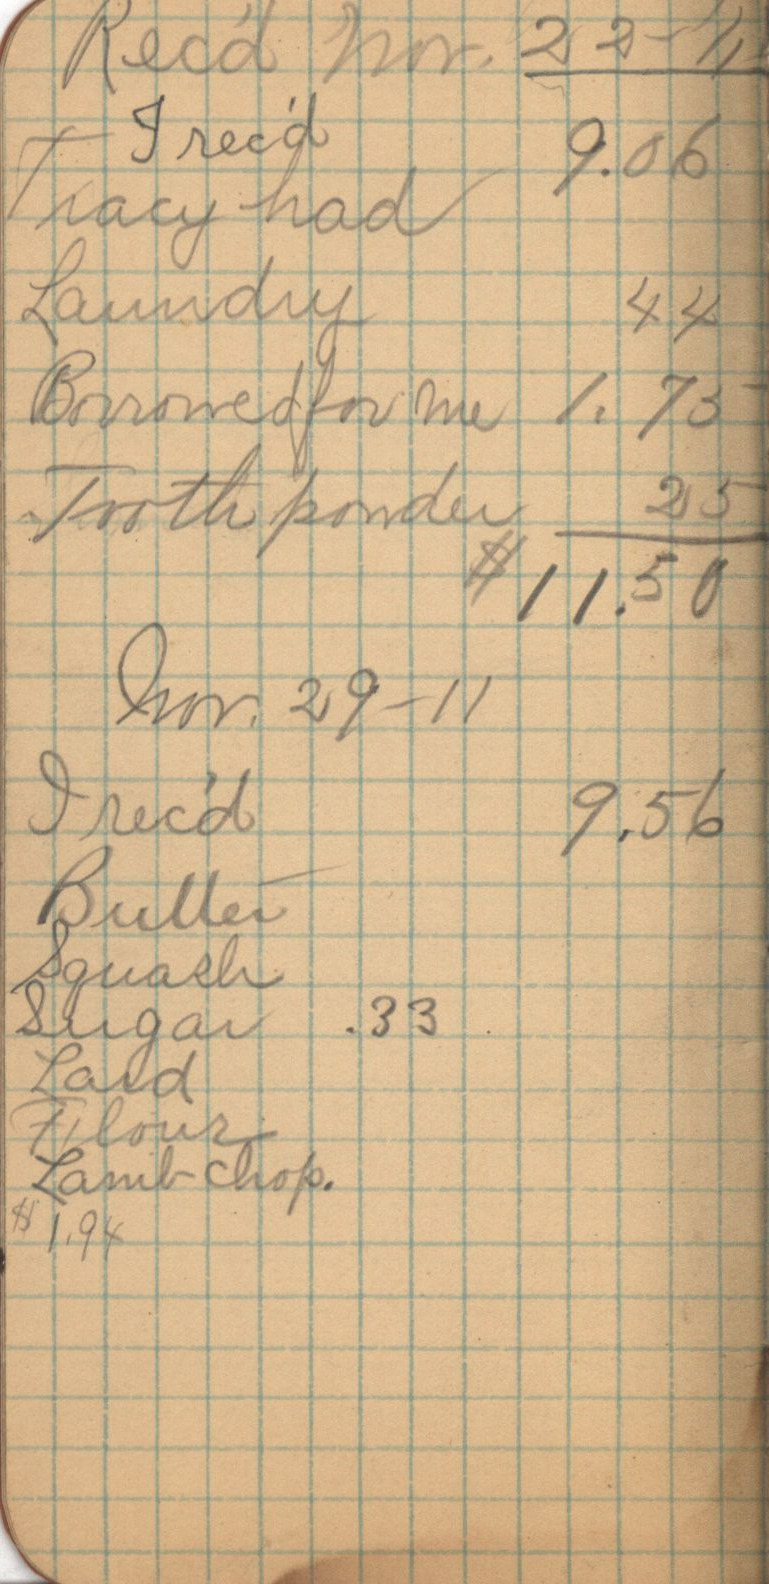 Rec'd Nov. 22-11
I rec'd 9.06
Tracy had
Laundry 44
Borrowed for me 1.75
Tooth powder 25
$11.50
Nov. 29-11
I rec'd 9.56
Butter
Squash
Sugar .33
Lard
Flour
Lamb chop.
$1.94